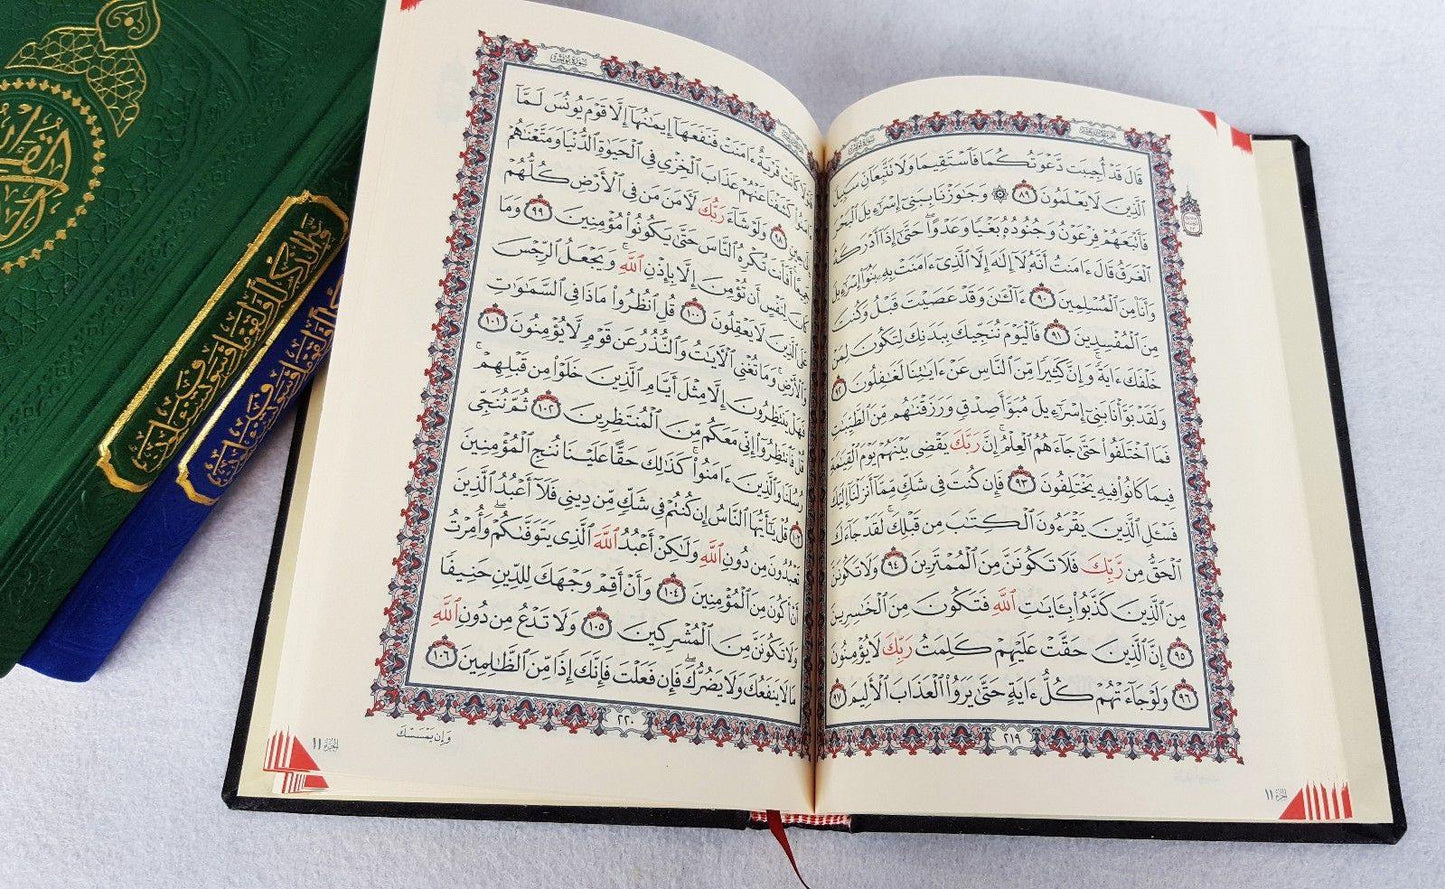 سُورَةُ يُونُسَ
قَالَ قَدۡ أُجِيبَت دَّعۡوَتُكُمَا فَٱسۡتَقِيمَا وَلَا تَتَّبِعَآنِّ سَبِيلَ
ٱلَّذِينَ لَا يَعۡلَمُونَ ٨٩ ۞ وَجَٰوَزۡنَا بِبَنِيٓ إِسۡرَٰٓءِيلَ ٱلۡبَحۡرَ
فَأَتۡبَعَهُمۡ فِرۡعَوۡنُ وَجُنُودُهُۥ بَغۡيٗا وَعَدۡوًاۖ حَتَّىٰٓ إِذَآ أَدۡرَكَهُ
ٱلۡغَرَقُ قَالَ ءَامَنتُ أَنَّهُۥ لَآ إِلَٰهَ إِلَّا ٱلَّذِيٓ ءَامَنَتۡ بِهِۦ بَنُوٓاْ إِسۡرَٰٓءِيلَ
وَأَنَا۠ مِنَ ٱلۡمُسۡلِمِينَ ٩٠ ءَآلۡـَٰٔنَ وَقَدۡ عَصَيۡتَ قَبۡلُ وَكُنتَ
مِنَ ٱلۡمُفۡسِدِينَ ٩١ فَٱلۡيَوۡمَ نُنَجِّيكَ بِبَدَنِكَ لِتَكُونَ لِمَنۡ
خَلۡفَكَ ءَايَةٗۚ وَإِنَّ كَثِيرٗا مِّنَ ٱلنَّاسِ عَنۡ ءَايَٰتِنَا لَغَٰفِلُونَ ٩٢
وَلَقَدۡ بَوَّأۡنَا بَنِيٓ إِسۡرَٰٓءِيلَ مُبَوَّأَ صِدۡقٖ وَرَزَقۡنَٰهُم مِّنَ ٱلطَّيِّبَٰتِ
فَمَا ٱخۡتَلَفُواْ حَتَّىٰ جَآءَهُمُ ٱلۡعِلۡمُۚ إِنَّ رَبَّكَ يَقۡضِي بَيۡنَهُمۡ يَوۡمَ ٱلۡقِيَٰمَةِ
فِيمَا كَانُواْ فِيهِ يَخۡتَلِفُونَ ٩٣ فَإِن كُنتَ فِي شَكّٖ مِّمَّآ أَنزَلۡنَآ إِلَيۡكَ
فَسۡـَٔلِ ٱلَّذِينَ يَقۡرَءُونَ ٱلۡكِتَٰبَ مِن قَبۡلِكَۚ لَقَدۡ جَآءَكَ
ٱلۡحَقُّ مِن رَّبِّكَ فَلَا تَكُونَنَّ مِنَ ٱلۡمُمۡتَرِينَ ٩٤ وَلَا تَكُونَنَّ
مِنَ ٱلَّذِينَ كَذَّبُواْ بِـَٔايَٰتِ ٱللَّهِ فَتَكُونَ مِنَ ٱلۡخَٰسِرِينَ
٩٥ إِنَّ ٱلَّذِينَ حَقَّتۡ عَلَيۡهِمۡ كَلِمَتُ رَبِّكَ لَا يُؤۡمِنُونَ
٩٦ وَلَوۡ جَآءَتۡهُمۡ كُلُّ ءَايَةٍ حَتَّىٰ يَرَوُاْ ٱلۡعَذَابَ ٱلۡأَلِيمَ ٩٧
٢١٩
الجزء ١١
سُورَةُ يُونُسَ
فَلَوۡلَا كَانَتۡ قَرۡيَةٌ ءَامَنَتۡ فَنَفَعَهَآ إِيمَٰنُهَآ إِلَّا قَوۡمَ يُونُسَ لَمَّآ
ءَامَنُواْ كَشَفۡنَا عَنۡهُمۡ عَذَابَ ٱلۡخِزۡيِ فِي ٱلۡحَيَوٰةِ ٱلدُّنۡيَا وَمَتَّعۡنَٰهُمۡ
إِلَىٰ حِينٖ ٩٨ وَلَوۡ شَآءَ رَبُّكَ لَأٓمَنَ مَن فِي ٱلۡأَرۡضِ كُلُّهُمۡ
جَمِيعًاۚ أَفَأَنتَ تُكۡرِهُ ٱلنَّاسَ حَتَّىٰ يَكُونُواْ مُؤۡمِنِينَ ٩٩ وَمَا
كَانَ لِنَفۡسٍ أَن تُؤۡمِنَ إِلَّا بِإِذۡنِ ٱللَّهِۚ وَيَجۡعَلُ ٱلرِّجۡسَ
عَلَى ٱلَّذِينَ لَا يَعۡقِلُونَ ١٠٠ قُلِ ٱنظُرُواْ مَاذَا فِي ٱلسَّمَٰوَٰتِ
وَٱلۡأَرۡضِۚ وَمَا تُغۡنِي ٱلۡأٓيَٰتُ وَٱلنُّذُرُ عَن قَوۡمٖ لَّا يُؤۡمِنُونَ ١٠١
فَهَلۡ يَنتَظِرُونَ إِلَّا مِثۡلَ أَيَّامِ ٱلَّذِينَ خَلَوۡاْ مِن قَبۡلِهِمۡۚ
قُلۡ فَٱنتَظِرُوٓاْ إِنِّي مَعَكُم مِّنَ ٱلۡمُنتَظِرِينَ ١٠٢ ثُمَّ نُنَجِّي
رُسُلَنَا وَٱلَّذِينَ ءَامَنُواْۚ كَذَٰلِكَ حَقًّا عَلَيۡنَا نُنجِ ٱلۡمُؤۡمِنِينَ
١٠٣ قُلۡ يَٰٓأَيُّهَا ٱلنَّاسُ إِن كُنتُمۡ فِي شَكّٖ مِّن دِينِي فَلَآ أَعۡبُدُ ٱلَّذِينَ
تَعۡبُدُونَ مِن دُونِ ٱللَّهِ وَلَٰكِنۡ أَعۡبُدُ ٱللَّهَ ٱلَّذِي يَتَوَفَّىٰكُمۡۖ وَأُمِرۡتُ
أَنۡ أَكُونَ مِنَ ٱلۡمُؤۡمِنِينَ ١٠٤ وَأَنۡ أَقِمۡ وَجۡهَكَ لِلدِّينِ حَنِيفٗا
وَلَا تَكُونَنَّ مِنَ ٱلۡمُشۡرِكِينَ ١٠٥ وَلَا تَدۡعُ مِن دُونِ ٱللَّهِ
مَا لَا يَنفَعُكَ وَلَا يَضُرُّكَۖ فَإِن فَعَلۡتَ فَإِنَّكَ إِذٗا مِّنَ ٱلظَّٰلِمِينَ ١٠٦
٢٢٠
وَإِن يَمۡسَسۡكَ
الجزء ١١